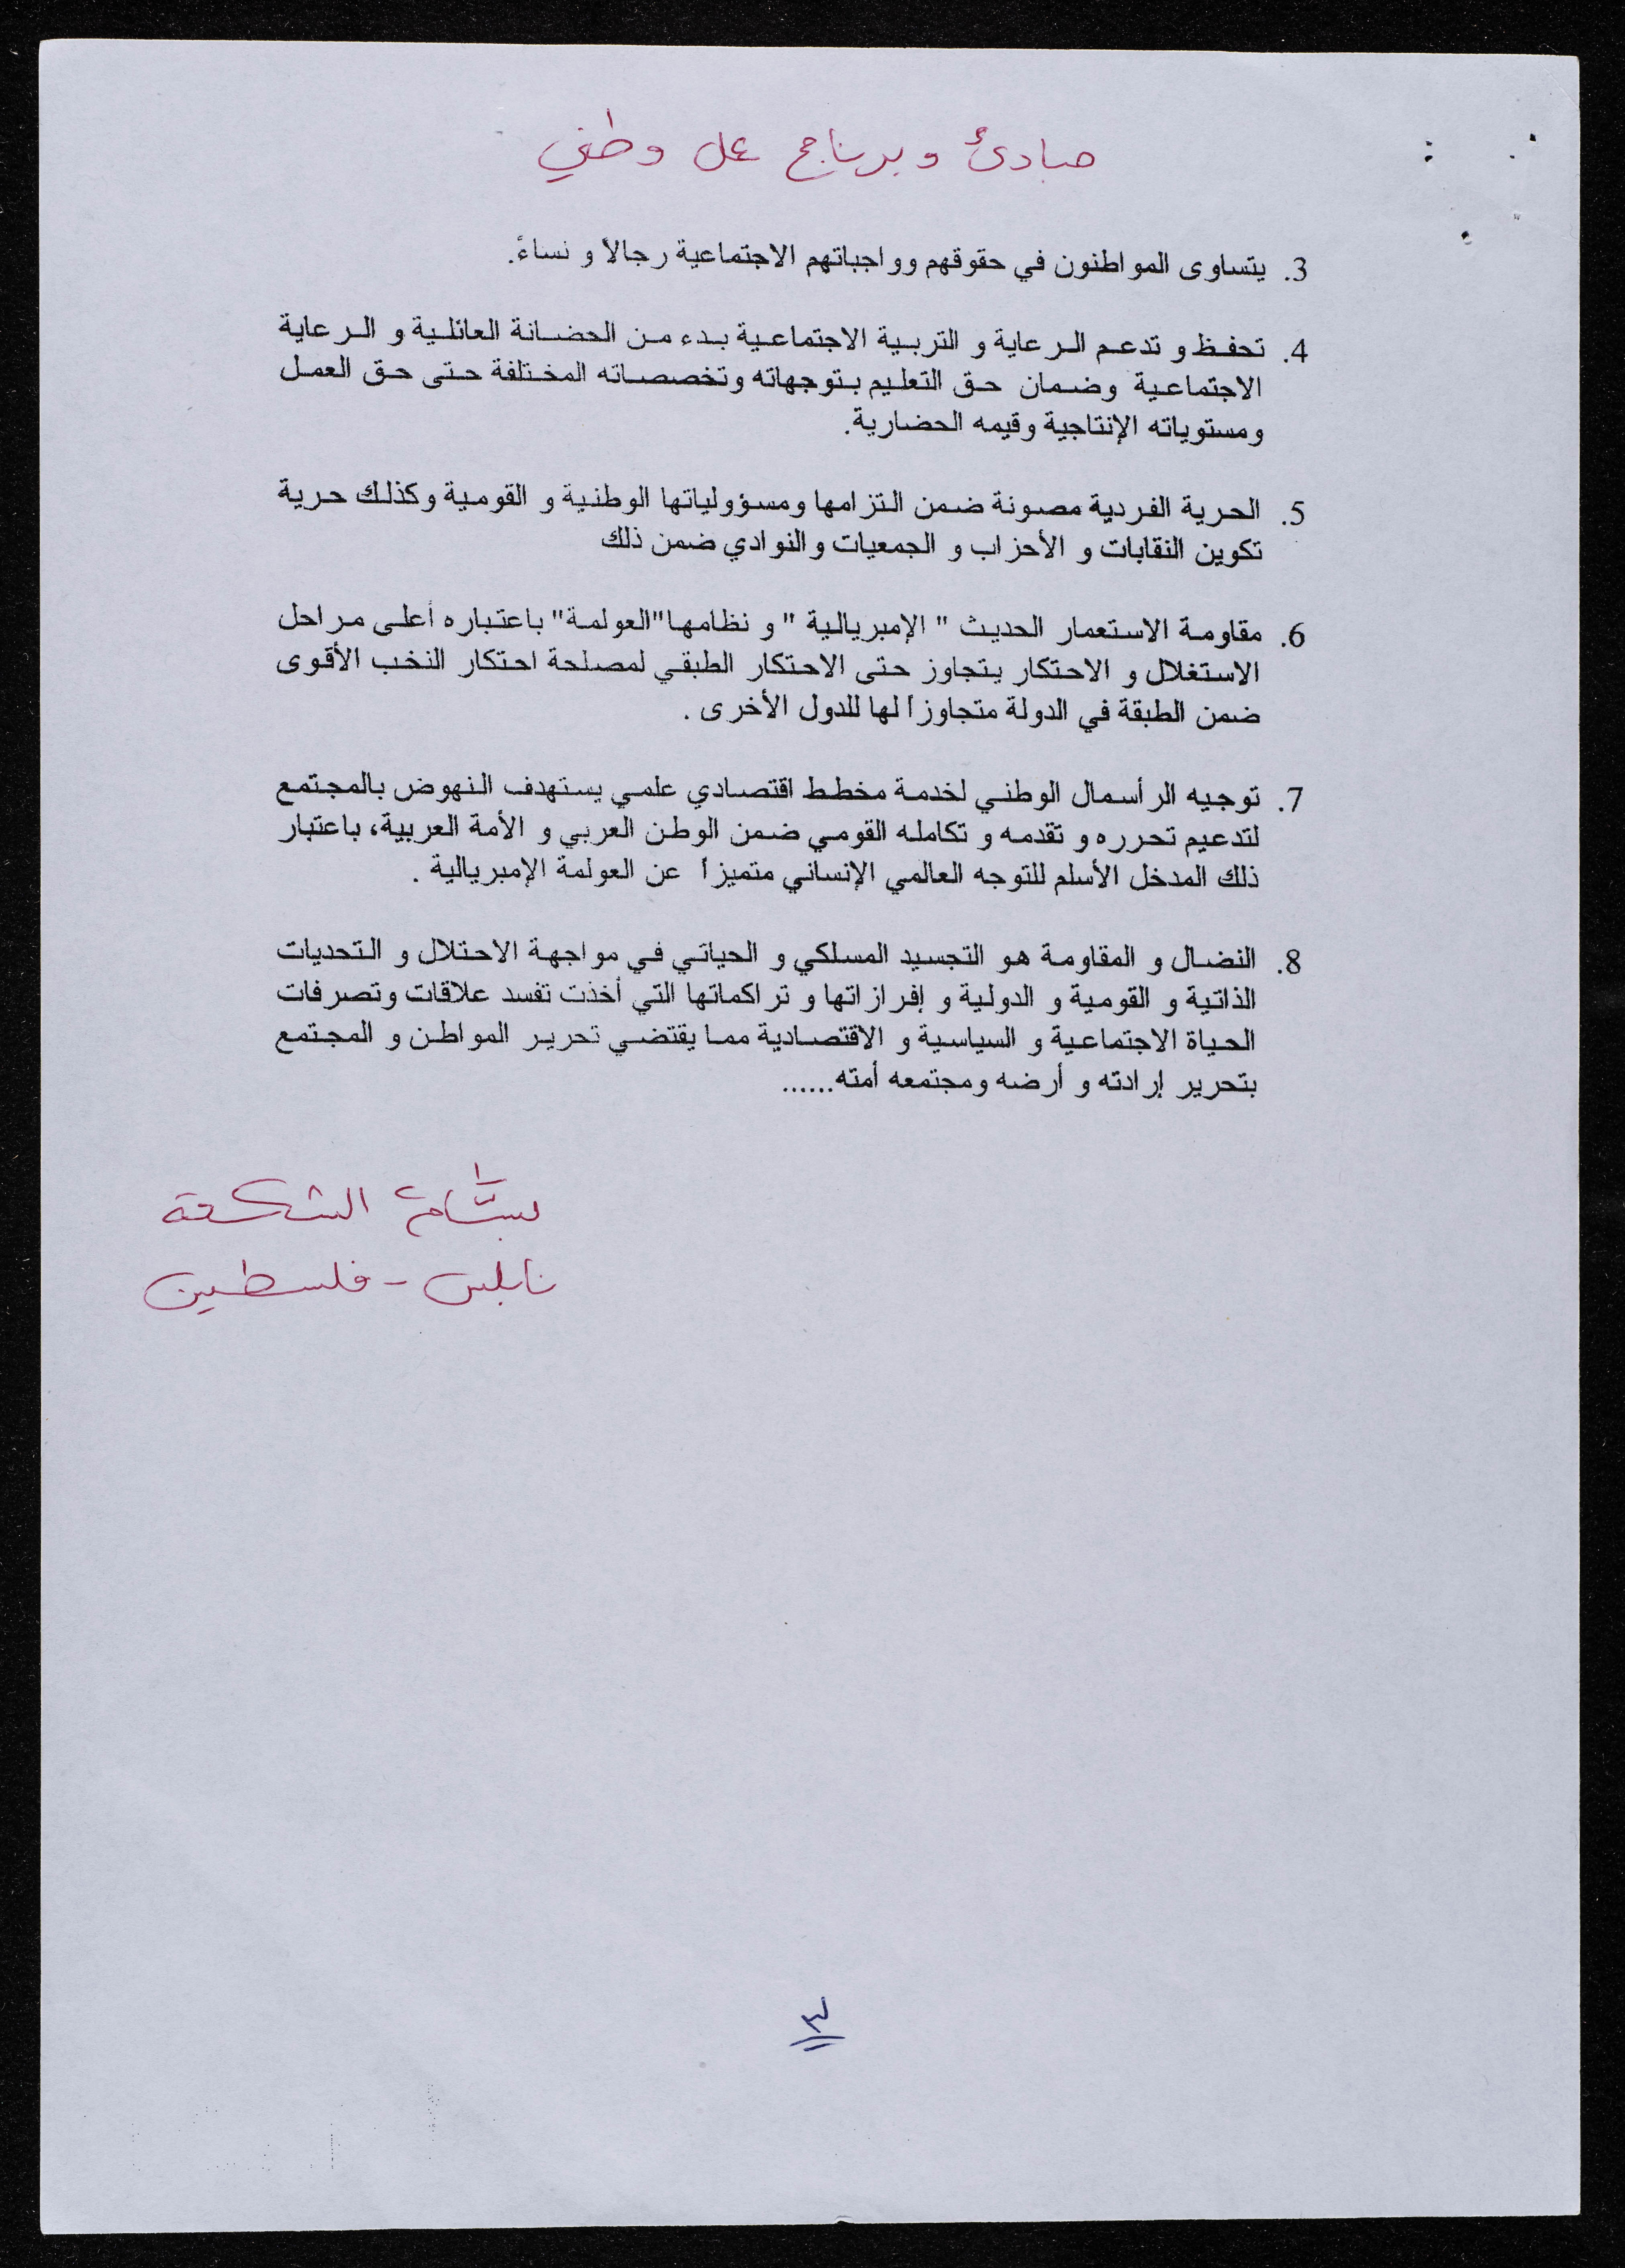 مبادئ وبرنامج عمل وطني
3. يتساوى المواطنون في حقوقهم وواجباتهم الاجتماعية رجالاً و نساءً.
4. تحفظ و تدعم الرعاية و التربية الاجتماعية بدء من الحضانة العائلية و الرعاية
الاجتماعية وضمان حق التعليم بتوجهاته وتخصصاته المختلفة حتى حق العمل
ومستوياته الإنتاجية وقيمه الحضارية.
5. الحرية الفردية مصونة ضمن التزامها ومسؤولياتها الوطنية و القومية وكذلك حرية
تكوين النقابات و الأحزاب و الجمعيات والنوادي ضمن ذلك
6. مقاومة الاستعمار الحديث " الإمبريالية " و نظامها"العولمة" باعتباره أعلى مراحل
الاستغلال و الاحتكار يتجاوز حتى الاحتكار الطبقي لمصلحة احتكار النخب الأقوى
ضمن الطبقة في الدولة متجاوزاً لها للدول الأخرى .
7. توجيه الرأسمال الوطني لخدمة مخطط اقتصادي علمي يستهدف النهوض بالمجتمع
لتدعيم تحرره و تقدمه و تكامله القومي ضمن الوطن العربي و الأمة العربية، باعتبار
ذلك المدخل الأسلم للتوجه العالمي الإنساني متميزاً عن العولمة الإمبريالية .
8. النضال و المقاومة هو التجسيد المسلكي و الحياتي في مواجهة الاحتلال و التحديات
الذاتية و القومية و الدولية و إفرازاتها و تراكماتها التي أخذت تفسد علاقات وتصرفات
الحياة الاجتماعية و السياسية و الاقتصادية مما يقتضي تحرير المواطن و المجتمع
بتحرير إرادته و أرضه ومجتمعه أمته......
بسّام الشكعة
نابلس - فلسطين